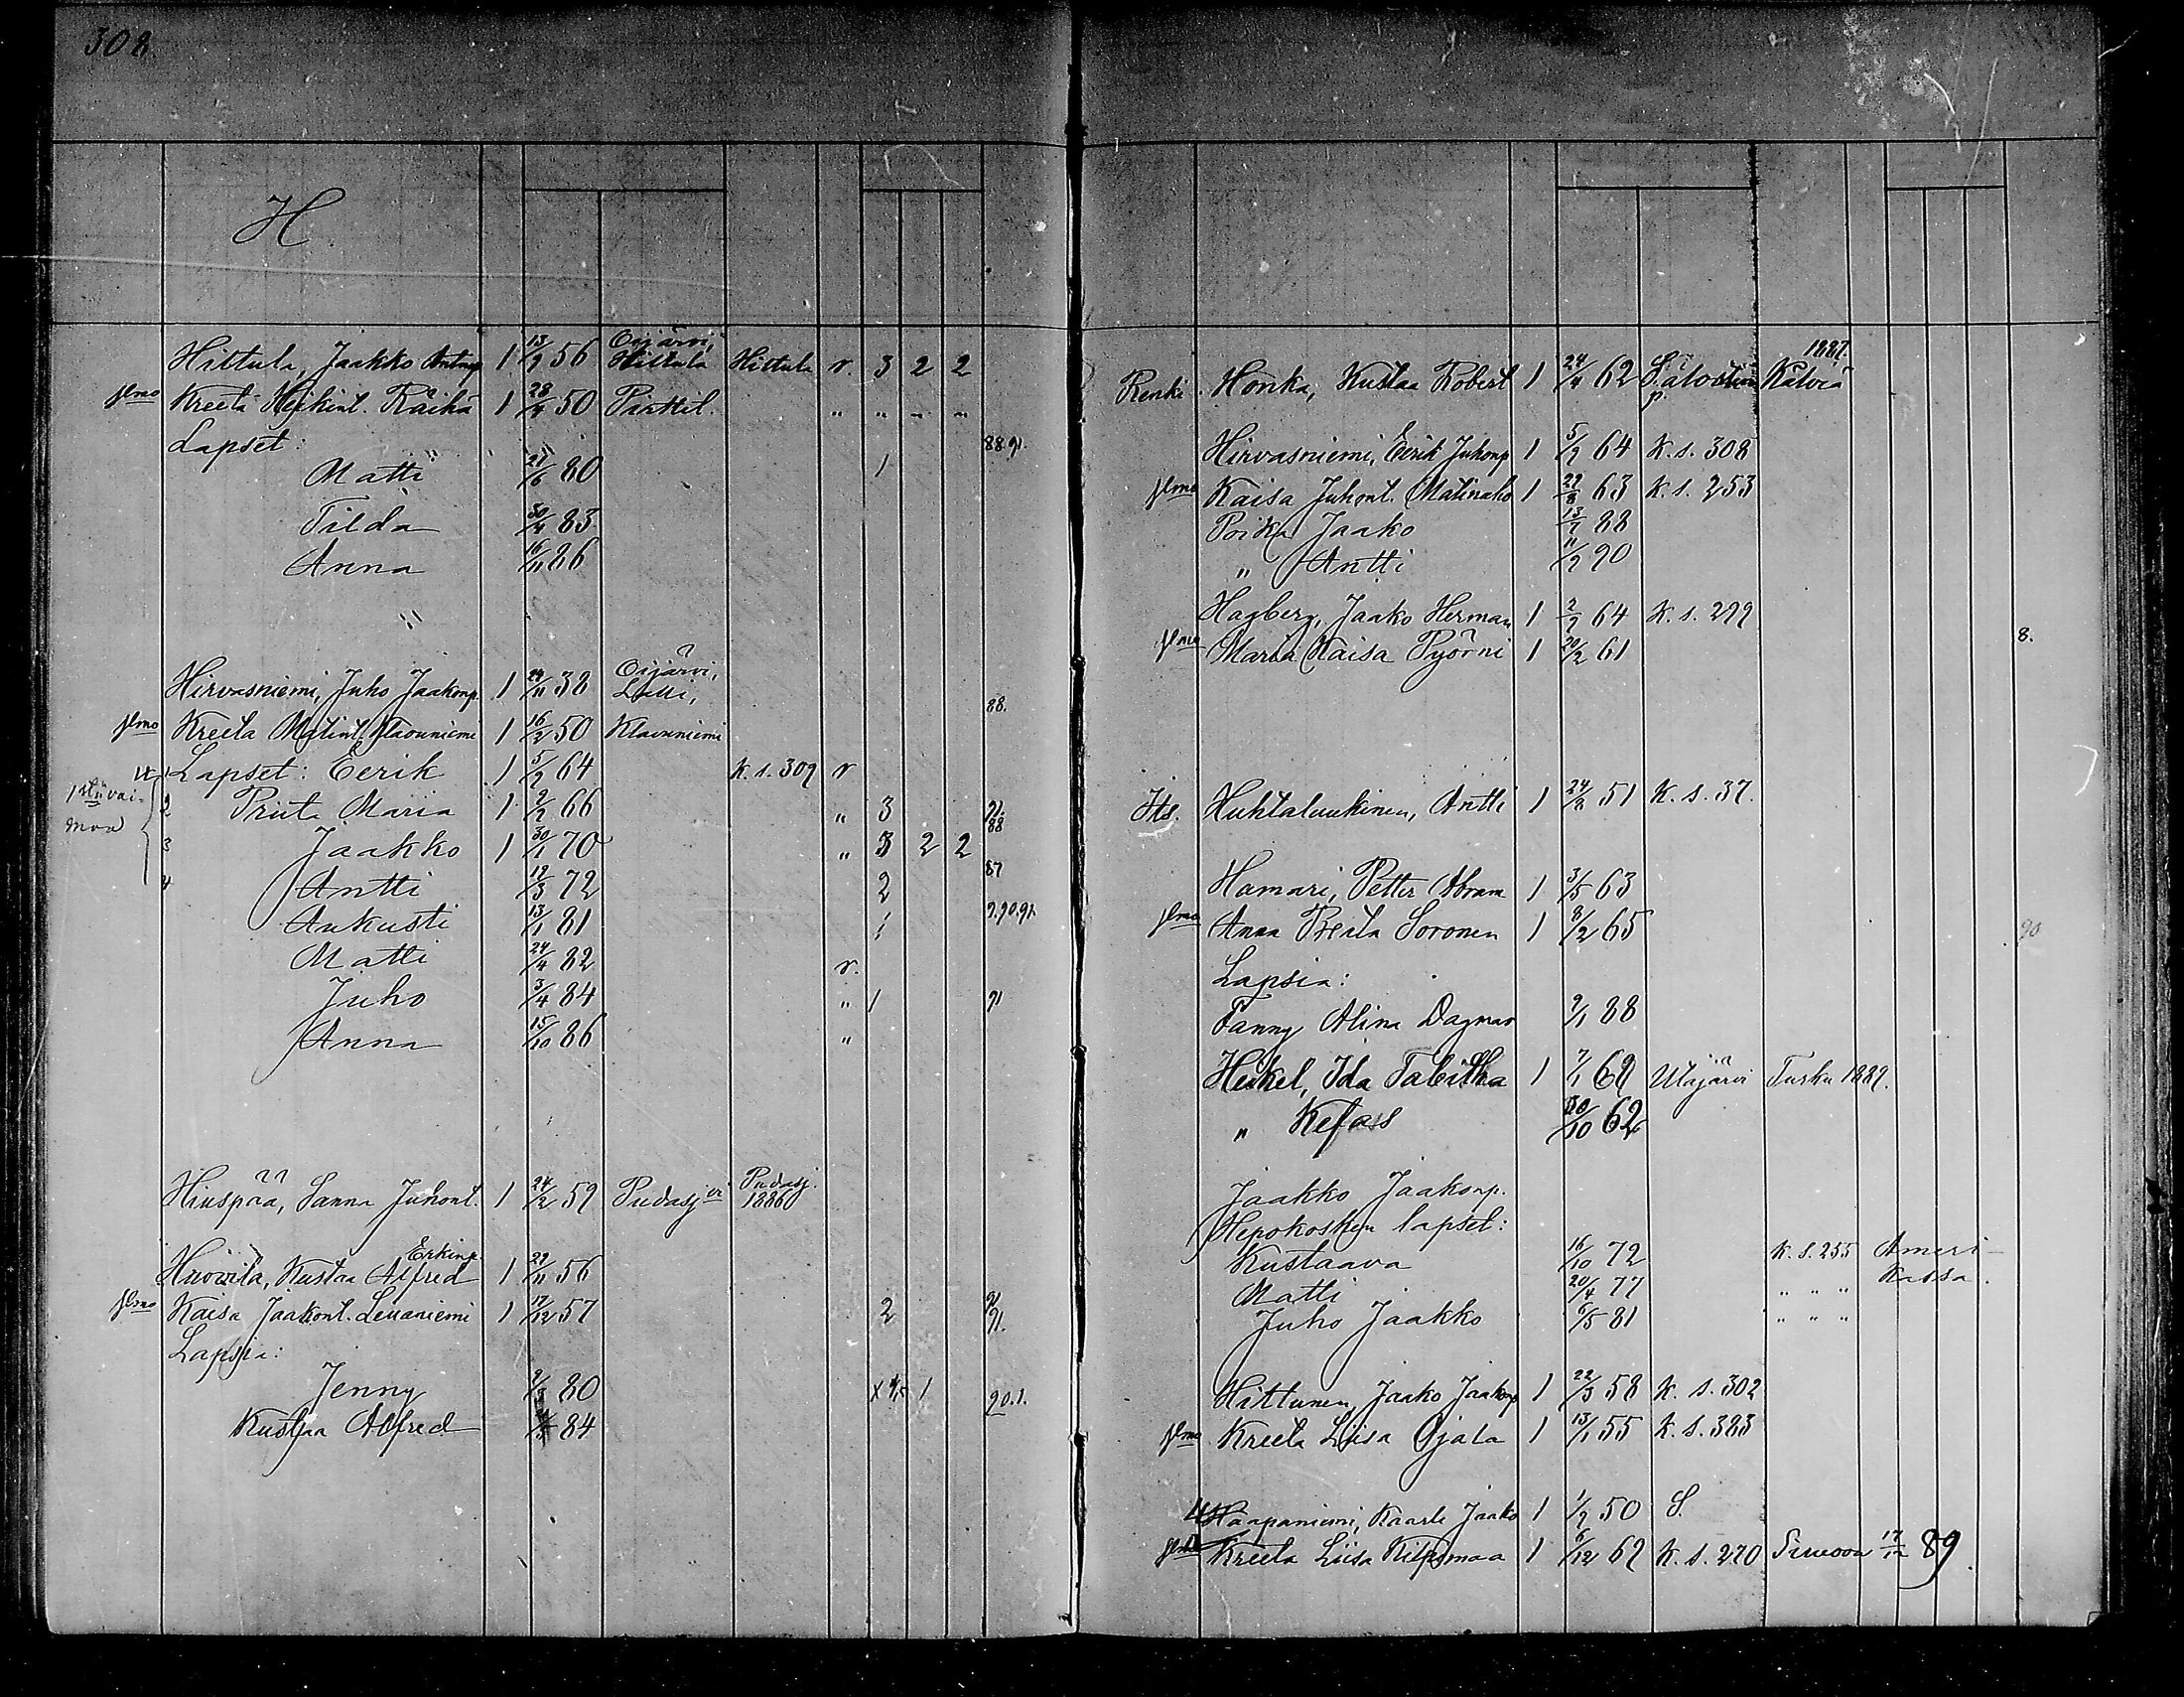 308.
H.
Hiltula, Jaakko Antinp. 1 13/9 56 Oijärvi, Hiltula Hiltula r. 3 2 2
Kreeta Heikint. Räihä 1 28/4 50 Pirttil. " " " "
Lapset: 88.91.
Matti 21/6 80 1
Tilda 30/4 83
Anna 16/11 86
Hirvasniemi, Juho Jaakonp. 1 24/11 38 Oijärvi,
88.
Kreeta Matint. Klaavuniemi 1 16/2 50 Klaavuniemi
Lapset: Eerik 1 5/9 64 K. s. 309 r
2 Priita Maria 1 2/2 66 " 3
3 Jaakko 1 30/1 70 " 3 2 2 88
4 Antti 12/3 72 2 87
Aukusti 13/1 81 1 9.90.91.
Matti 24/4 82 r.
Juho 3/4 84 " 1 91
Anna 15/10 86 "
Hiuspää, Sanna Juhont. 1 24/2 59 Pudasj Pudasj. 1886
Huovila, Kustaa Alfred Erkinp. 1 29/11 56
Kaisa Jaakont. Leuaniemi 1 17/12 57 2 91.
Lapsia:
Jenny 80 1 90.1.
Kustaa Alfred 84
Renki. Honka, Kustaa Robert 1 24/4 62 Kälviä 1887.
Hirvasniemi, Eerik Juhonp 1 5/9 64 K. s. 308
Kaisa Juhont. Matinaho 1 29/8 63 K. s. 253
Poika Jaako 13/7 88
" Antti 11/9 90
Hagberg, Jaako Herman 1 2/9 64 K. s. 299
Maria Kaisa Pyörni 1 20/2 61 8.
Its. Huhtaluukinen, Antti 1 24/8 51 K. s. 37.
Hamari, Petter Abram 1 3/5 63
Anna Priita Soronen 1 8/2 65 90
Lapsia:
Fanny Alina Dagmar 9/1 88
Heikel, Ida Tabitha 1 7/1 69 Ulajärvi Turku 1889.
" Kefas 30/10 62
Jaakko Jaakonp.
Hepokosken lapset:
Kustaava 16/10 72 K. s. 255 Ameri-
Matti 20/4 77 " " " kassa.
Juho Jaakko 6/5 81 " " "
Hiltunen, Jaako Jaakonp 1 22/3 58 K. s. 302
Kreeta Liisa Ojala 1 13/1 55 K. s. 383
Haapaniemi, Kaarle Jaako 1 1/9 50 S.
Kreeta Liisa Kilpimaa 1 6/12 69 K. s. 270 Simoon 17/12 89.